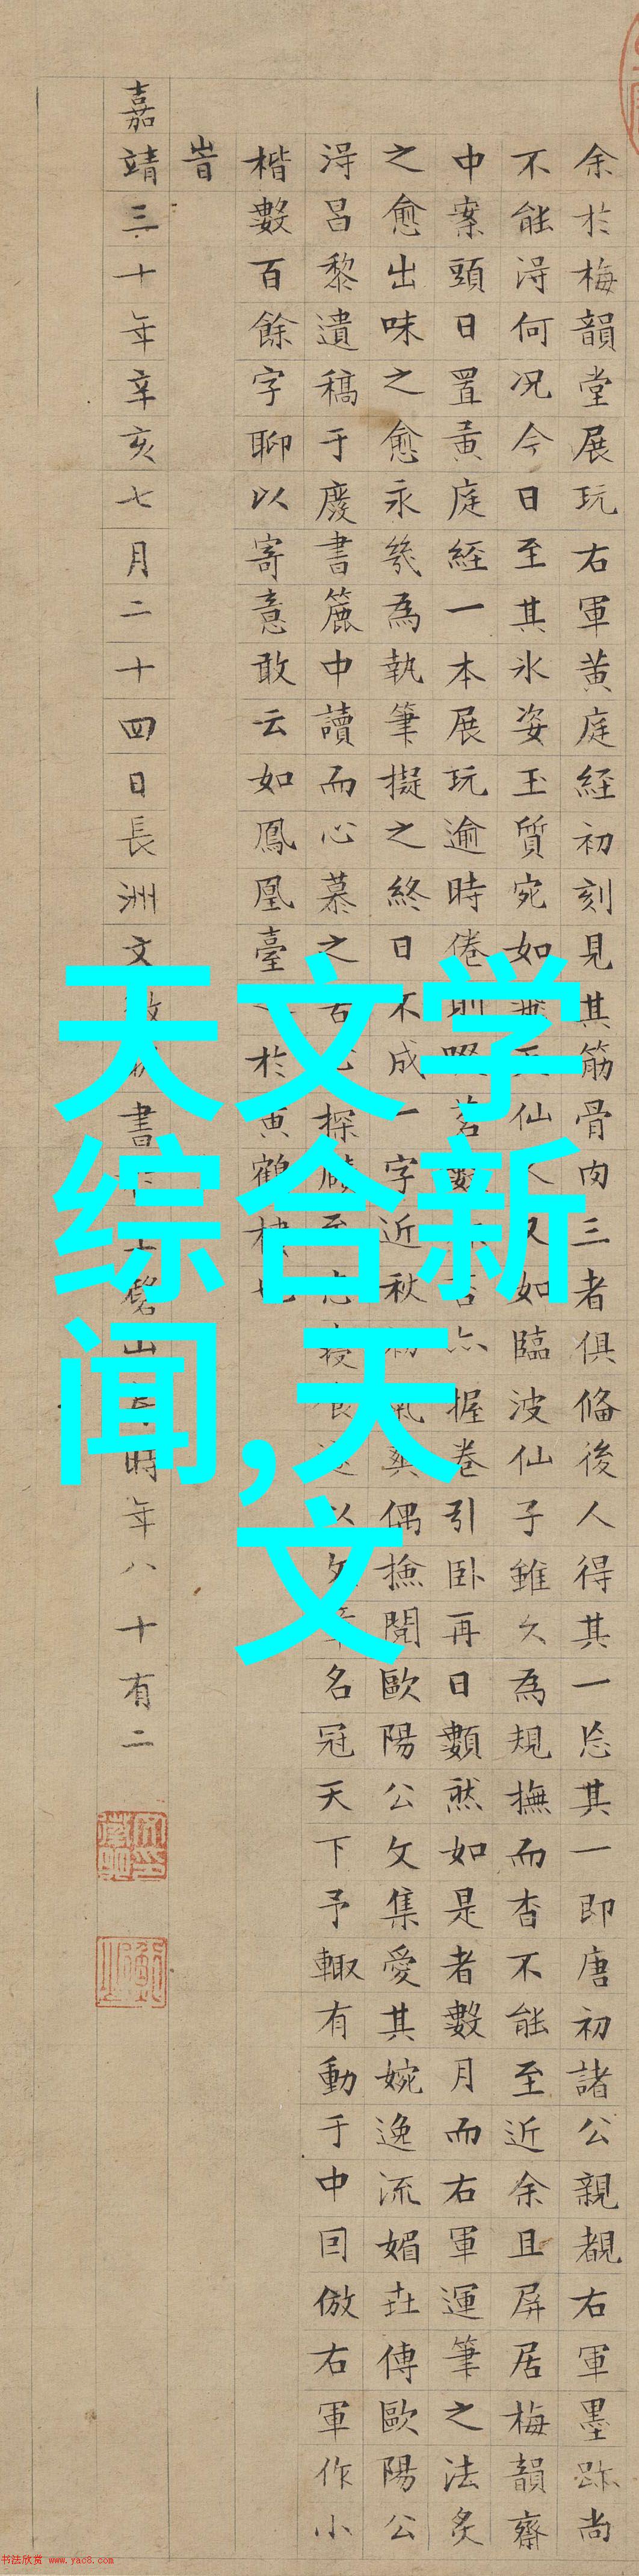 余於梅韻堂展玩右軍黃庭經初刻見其筋骨肉三者俱俻後人得其一忘其一即唐初諸公親覩右軍墨跡尚
不能淂何况今日至其氷姿玉質宛如仙又如臨波仙子雖久為規撫而杳不能至近余且屏居梅韻齋
中案頭日置黃庭經一本展玩逾時倦則啜茗數握卷引卧再日數然如是者數月而右軍運筆之法炙
之愈出味之愈永幾為執筆擬之終日不成一字近秋偶撿閱歐陽公文集愛其婉逸流媚壵傳歐陽公
淂昌黎遺稿于廢書簏中讀而心慕之探賾至忘寢食遂以文章名冠天下予輙有動于中囙倣右軍作小
楷數百餘字聊以寄意敢云如鳳凰臺於黃鶴樓也
旹
嘉靖三十年辛亥七月二十四日長洲文書山時年八十有二
天文学
综合新
闻,天
文
书法欣赏 www.yac8.com